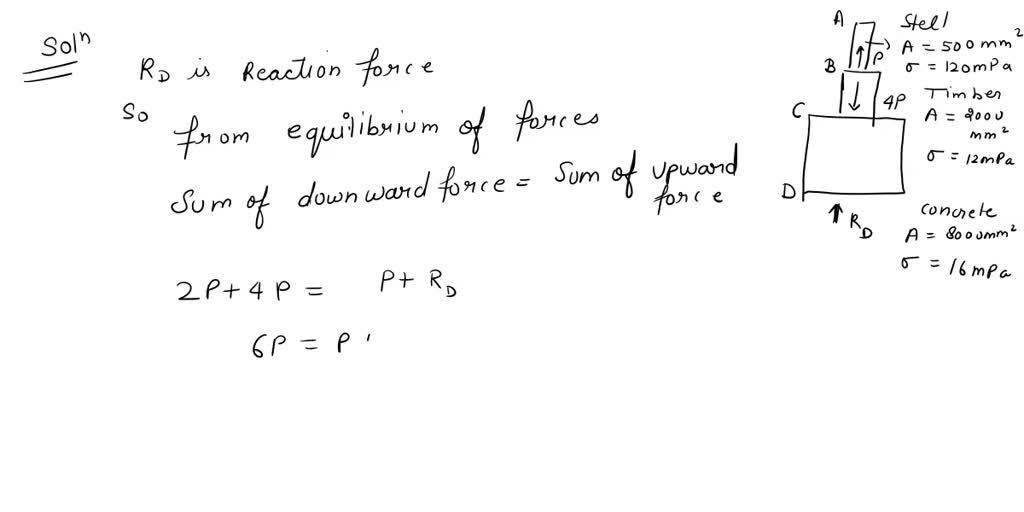 Solⁿ
R_D is Reaction force
So
from equilibrium of forces
Sum of downward force = Sum of upward
force
2P + 4P = P + R_D
6P = P
A
B
C
D
P
4P
R_D
Stell
A = 500 mm²
σ = 120mPa
Timber
A = 2000
mm²
σ = 12mPa
concrete
A = 8000mm²
σ = 16mPa